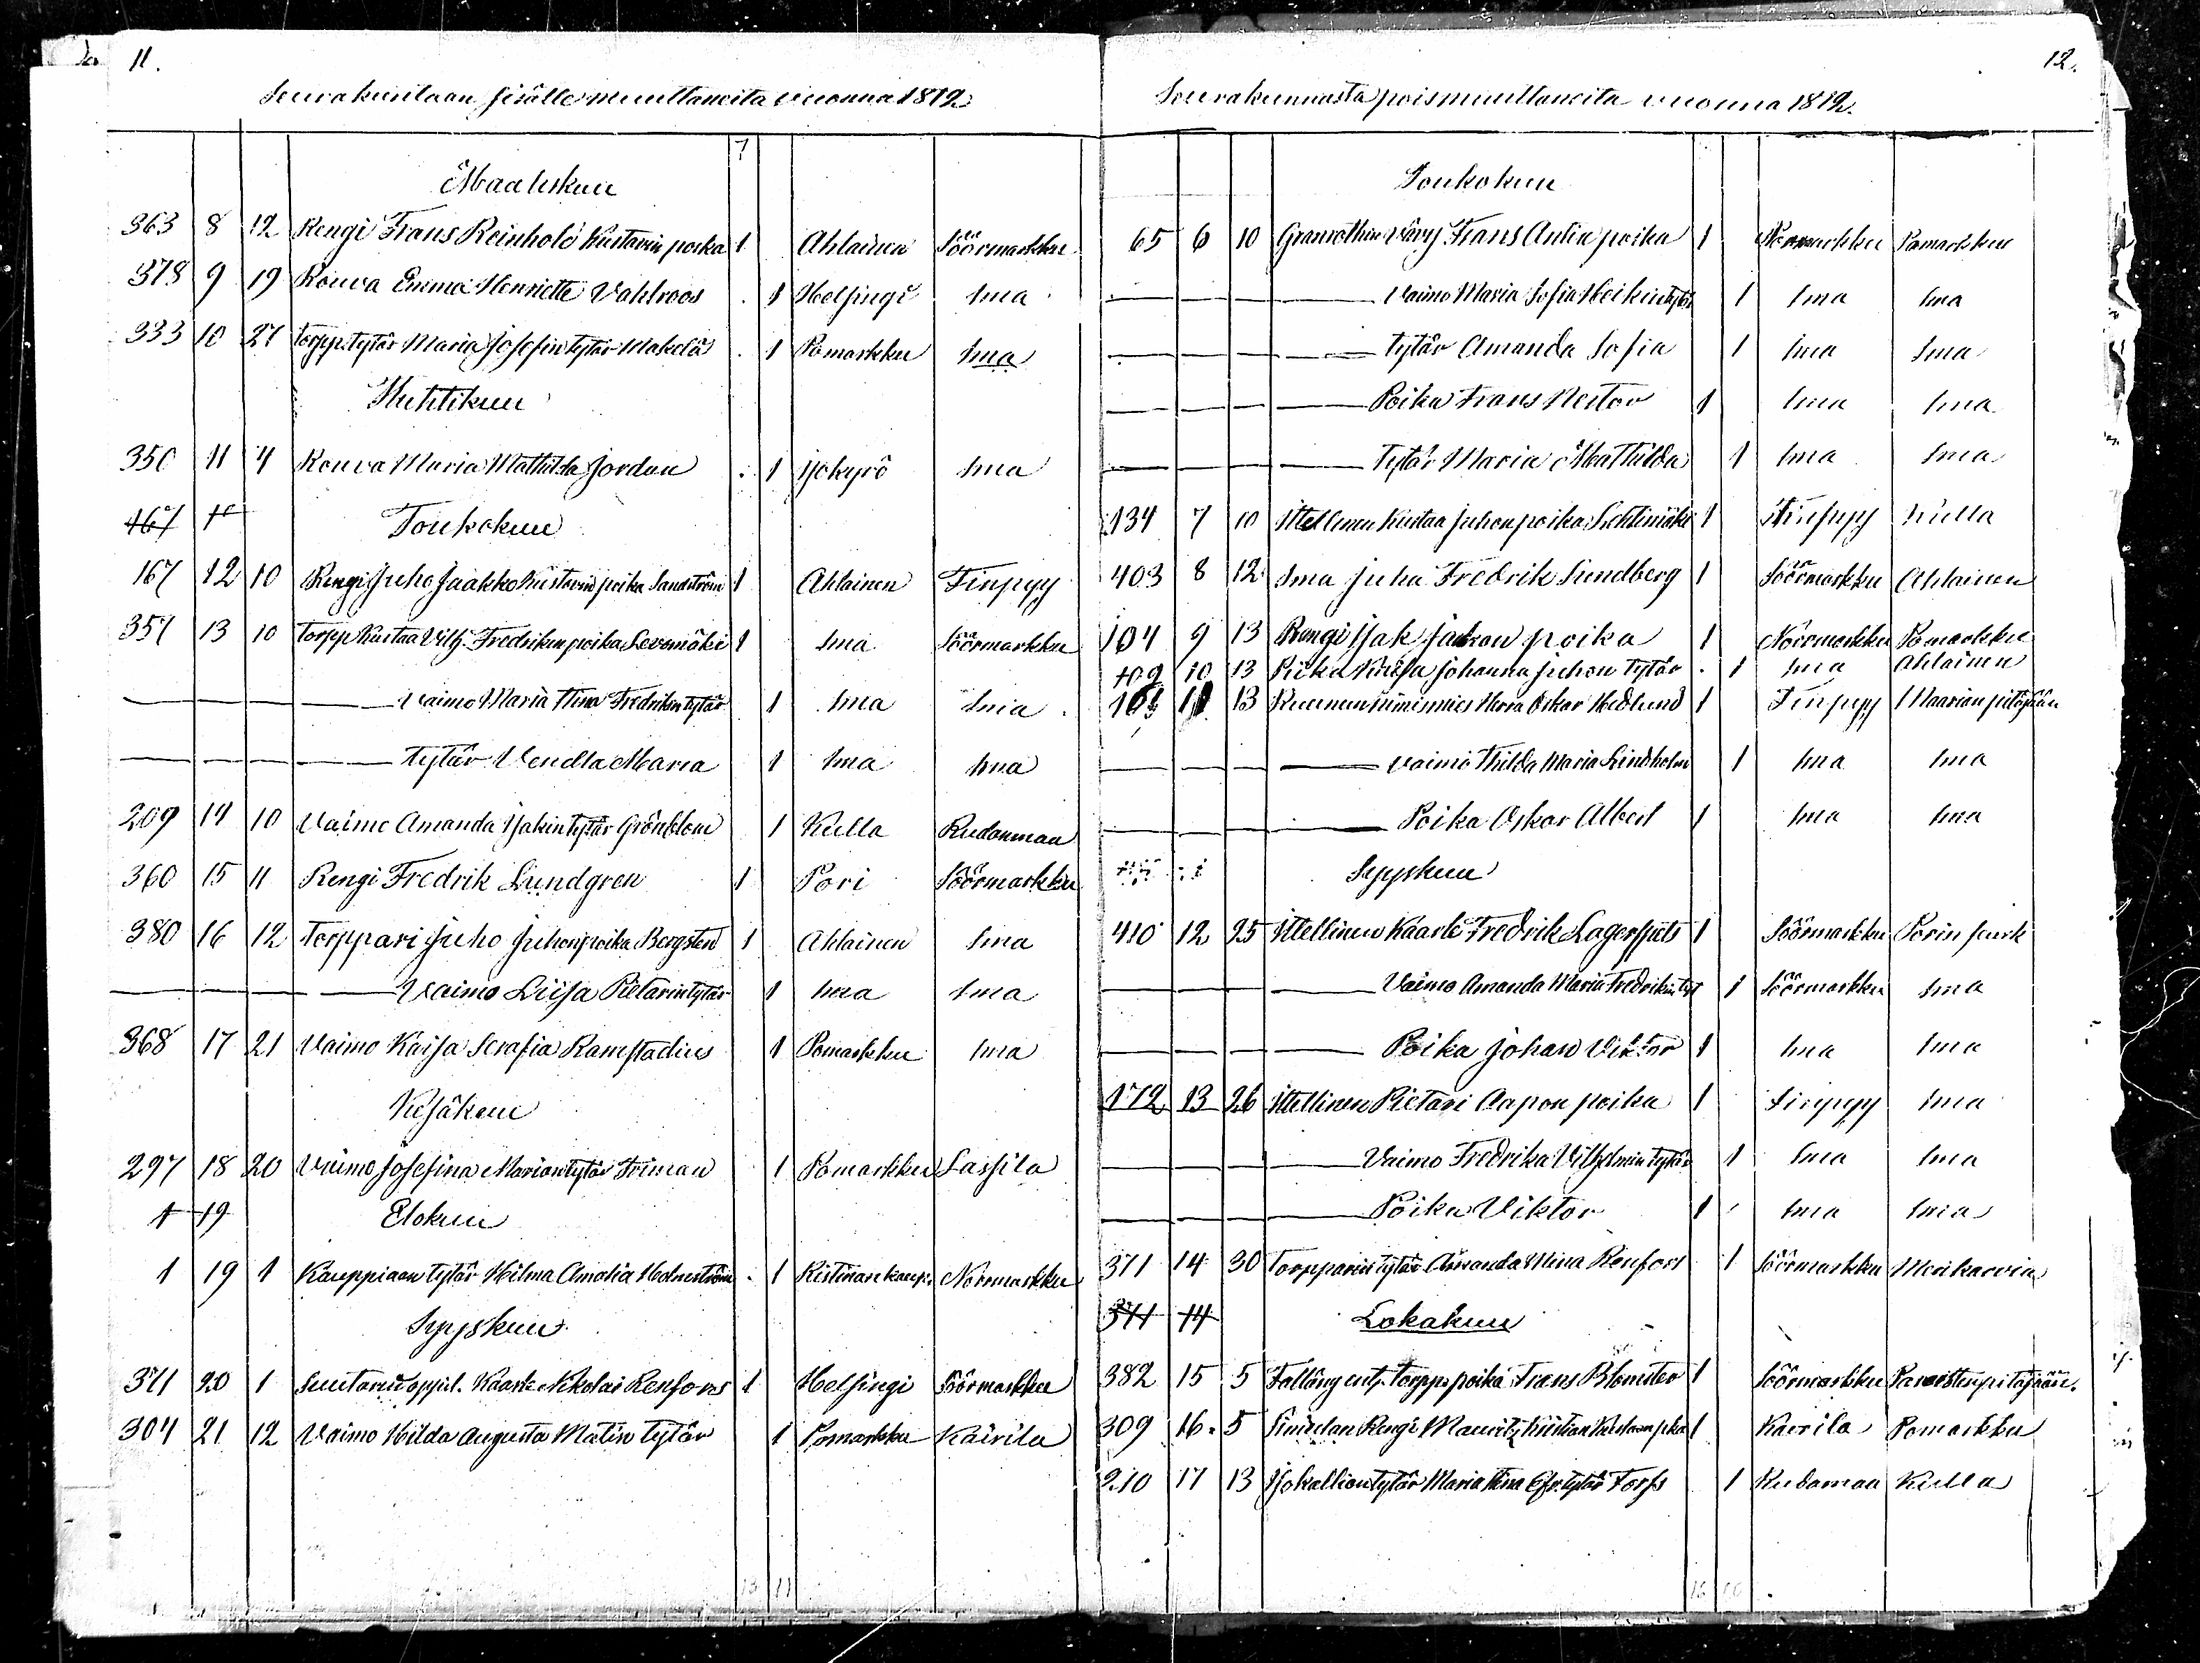 11.
Seurakuntaan sisälle muuttaneita vuonna 1812
7
Maaliskuu
363 8 12 Rengi Frans Reinhold Kustavin poika 1 Ahlainen Söörmarkku
378 9 19 Rouva Emma Henriette Vahlroos 1 Helsingi sma
333 10 27 Torpp. tytär Maria Josefin tytär Makelä 1 Pomarkku sma
Huhtikuu
350 11 4 Rouva Maria Mathilda Jordan 1 Jokyrö sma
167 12
Toukokuu
167 12 10 Rengi Juho Jaakko Kustavin poika Sandström 1 Ahlainen Finpyy
357 13 10 Torpp Kustaa Vilh. Fredrikin poika Levomäki 1 sma Söörmarkku
Vaimo Maria Stina Fredrikin tytär 1 sma sma
tytär Vendla Maria 1 sma sma
209 14 10 Vaimo Amanda Isakin tytär Grönblom 1 Kulla Rudanmaa
360 15 11 Rengi Fredrik Lundgren 1 Pori Söörmarkku
380 16 12 Torppari Juho Juhonpoika Bergsten 1 Ahlainen sma
Vaimo Liisa Pietarintytär 1 sma sma
368 17 21 Vaimo Kaisa Serafia Ramstadius 1 Pomarkku sma
Kesäkuu
297 18 20 Vaimo Josefina Mariantytär Friman 1 Pomarkku Lassila
1 19 Elokuu
1 19 1 Kauppiaan tytär Hilma Amalia Holmström 1 Kistinan kaup. Normarkku
Syyskuu
371 20 1 Suutarin oppil. Kaarle Nikolai Renfors 1 Helsingi Söörmarkku
304 21 12 Vaimo Hilda Augusta Matin tytär 1 Pomarkku Kairila
13 11
12.
Seurakunnasta poismuuttaneita vuonna 1812.
Toukokuu
65 6 10 Granrothin Vävy Frans Antin poika 1 Normarkku Pomarkku
Vaimo Maria Sofia Heikintytär 1 sma sma
tytär Amanda Sofia 1 sma sma
Poika Frans Nestor 1 sma sma
Tytär Maria Mathilda 1 sma sma
134 7 10 Ittellinen Kustaa Juhonpoika Lehtimäki 1 Finpyy Kulla
403 8 12 sma Juha Fredrik Sundberg 1 Söörmarkku Ahlainen
104 9 13 Rengi Isak Jakon poika 1 Noormarkku Pomarkku
102 10 13 Piika Kaisa Johanna Juhon tytär 1 sma Ahlainen
11 13 Herra Oskar Hedlund 1 Finpyy Maarian pitäjään
vaimo Hilda Maria Lindholm 1 sma sma
Poika Oskar Albert 1 sma sma
Syyskuu
410 12 25 Ittellinen Kaarle Fredrik Lagerspets 1 Söörmarkku Porin
Vaimo Amanda Maria Fredrikintyt 1 Söörmarkku sma
Poika Johan Viktor 1 sma sma
172 13 26 Ittellinen Pietari Aapon poika 1 Finpyy sma
Vaimo Fredrika Vilhelmin tytär 1 sma sma
Poika Viktor 1 sma sma
371 14 30 Torpparin tytär Amanda Mina Renfors 1 Söörmarkku Merikarvia
371 14 Lokakuu
382 15 5 Falläng ent. Torpp. poika Frans Blomster 1 Söörmarkku
309 16 5 Rengi Mauritz Kustan poika 1 Kairila Pomarkku
210 17 13 Isokallion tytär Maria Stina Efr. tytär Forss 1 Rudamaa Kulla